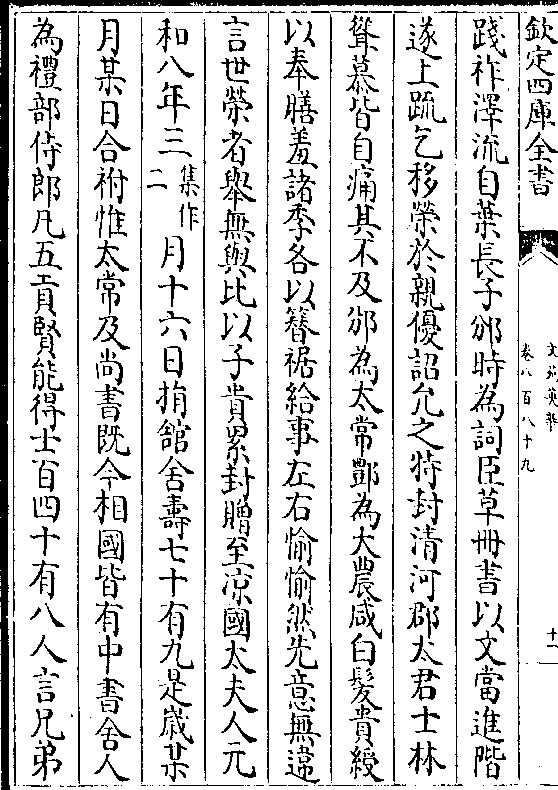 欽定四庫全書
文苑英華
卷八百八十九
十一
踐祚澤流自葉長子邠時為詞臣草冊書以文當進階
遂上疏乞移榮於親優詔允之特封清河郡太君士林
聳慕皆自痛其不及邠為太常酆為大農咸白髮貴綬
以奉膳羞諸季各以簪裾給事左右愉愉然先意無違
言世榮者舉無與比以子貴累封贈至凉國太夫人元
和八年三
集作
二
月十六日捐舘舍壽七十有九是嵗某
月某日合祔惟太常及尚書既今相國皆有中書舍人
為禮部侍郎凡五貢賢能得士百四十有八人言兄弟